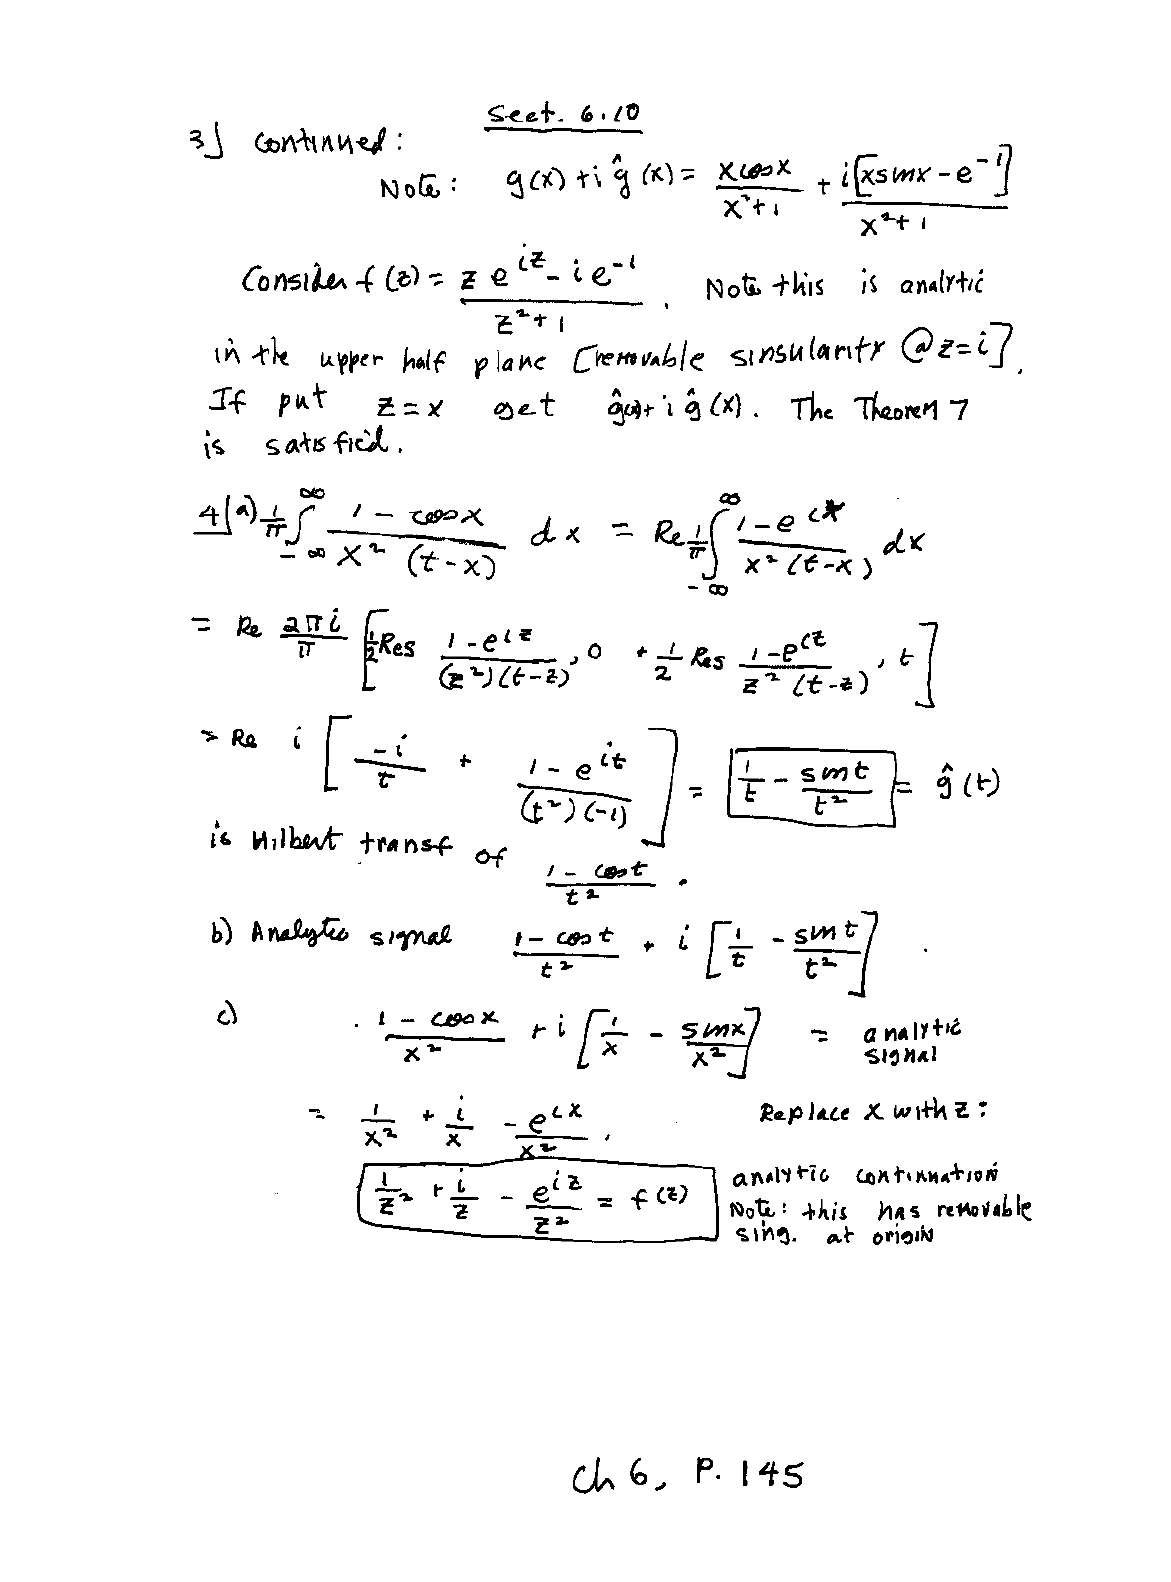 Sect. 6.10
3] Continued:
Note: g(x) + i ĝ(x) = x cos x / (x²+1) + i[x sin x - e⁻¹] / (x²+1)
Consider f(z) = (z e^{iz} - i e⁻¹) / (z²+1). Note this is analytic
in the upper half plane [removable singularity @ z=i].
If put z=x get ĝ(x)+ i ĝ(x). The Theorem 7
is satisfied.
4(a) 1/π ∫_{-∞}^{∞} (1 - cos x) / (x² (t-x)) dx = Re 1/π ∫_{-∞}^{∞} (1 - e^{ix}) / (x² (t-x)) dx
= Re 2πi/π [ 1/2 Res (1 - e^{iz}) / ((z²)(t-z)), 0 + 1/2 Res (1 - e^{iz}) / (z² (t-z)), t ]
= Re i [ -i/t + (1 - e^{it}) / ((t²)(-1)) ] = 1/t - sin t / t² = ĝ(t)
is Hilbert transf of (1 - cos t) / t² .
b) Analytic signal (1 - cos t) / t² + i [ 1/t - sin t / t² ]
c) (1 - cos x) / x² + i [ 1/x - sin x / x² ] = analytic signal
= 1/x² + i/x - e^{ix}/x² . Replace x with z:
1/z² + i/z - e^{iz}/z² = f(z) analytic continuation
Note: this has removable
sing. at origin
Ch 6, P. 145